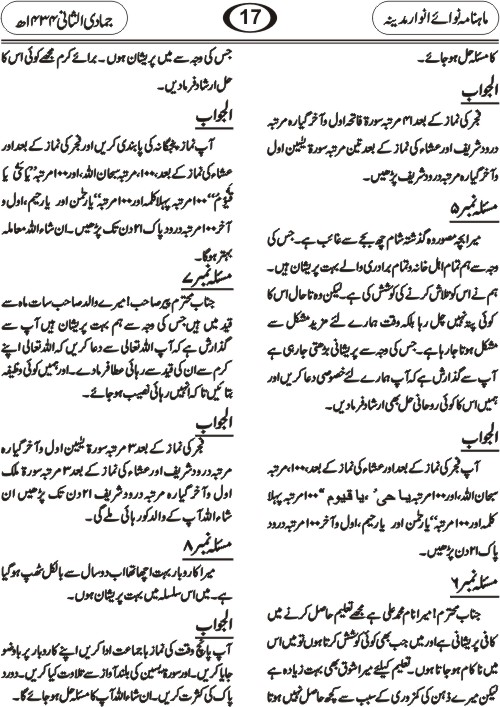 ماہنامہ نوائے انوار مدینہ
17
جمادی الثانی ۱۴۳۴ھ
کا مسئلہ حل ہو جائے۔
الجواب
فجر کی نماز کے بعد ۴۱ مرتبہ سورۃ فاتحہ اول و آخر گیارہ مرتبہ
درود شریف اور عشاء کی نماز کے بعد تین مرتبہ سورۃ یٰسین اول
و آخر گیارہ مرتبہ درود شریف پڑھیں۔
مسئلہ نمبر ۵
میرا بچہ مصور وہ گذشتہ شام چھ بجے سے غائب ہے۔ جس کی
وجہ سے ہم تمام اہل خانہ و تمام برادری والے بہت پریشان ہیں۔
ہم نے اس کو تلاش کرنے کی کوشش کی ہے۔ لیکن وہ تا حال اس کا
کوئی پتہ نہیں چل رہا بلکہ وقت ہمارے لئے مزید مشکل سے
مشکل ہوتا جا رہا ہے۔ جس کی وجہ سے پریشانی بڑھتی جا رہی ہے
آپ سے گذارش ہے کہ آپ ہمارے لئے خصوصی دعا کریں اور
ہمیں اس کا کوئی روحانی حل بھی ارشاد فرما دیں۔
الجواب
آپ فجر کی نماز کے بعد اور عشاء کی نماز کے بعد، ۱۰۰ مرتبہ
سبحان اللہ، اور ۱۰۰ مرتبہ یا حی ُ ، یا قیوم “ ۱۰۰ مرتبہ پہلا
کلمہ اور ۱۰۰ مرتبہ ‘‘ یا رحمٰن اور یا رحیم، اول و آخر ۱۰۰ مرتبہ درود
پاک ۲۱ دن پڑھیں۔
مسئلہ نمبر ۶
جناب محترم! میرا نام محمد علی ہے مجھے تعلیم حاصل کرنے میں
کافی پریشانی ہے اور میں جب بھی کوئی کوشش کرتا ہوں تو میں اس
میں نا کام ہو جاتا ہوں۔ تعلیم کیلئے میرا شوق بھی بہت زیادہ ہے
لیکن میرے ذہن کی کمزوری کے سبب سے کچھ حاصل نہیں ہوتا
جس کی وجہ سے میں پریشان ہوں۔ برائے کرم مجھے کوئی اس کا
حل ارشاد فرما دیں۔
الجواب
آپ نماز پنجگانہ کی پابندی کریں اور فجر کی نماز کے بعد اور
عشاء کی نماز کے بعد، ۱۰۰ مرتبہ سبحان اللہ، اور ۱۰۰ مرتبہ ’’یا حَیُّ یا
قَیُّومُ‘‘ ۱۰۰ مرتبہ پہلا کلمہ اور ۱۰۰ مرتبہ ‘‘ یا رحمٰن اور یا رحیم، اول و
آخر ۱۰۰ مرتبہ درود پاک ۲۱ دن تک پڑھیں۔ ان شاء اللہ معاملہ
بہتر ہو گا۔
مسئلہ نمبر ۷
جناب محترم پیر صاحب! میرے والد صاحب سات ماہ سے
قید میں ہیں جس کی وجہ سے ہم بہت پریشان ہیں آپ سے
گذارش ہے کہ آپ اللہ تعالی سے دعا کریں کہ اللہ تعالی اپنے
کرم سے ان کی قید سے رہائی عطا فرما دے۔ اور ہمیں کوئی وظیفہ
بتائیں تا کہ انہیں رہائی نصیب ہو جائے۔
الجواب
فجر کی نماز کے بعد ۳ مرتبہ سورۃ یٰسین اول و آخر گیارہ
مرتبہ درود شریف اور عشاء کی نماز کے بعد ۳ مرتبہ سورۃ ملک
اول و آخر گیارہ مرتبہ درود شریف ۲۱ دن تک پڑھیں ان
شاء اللہ آپ کے والد کو رہائی ملے گی۔
مسئلہ نمبر ۸
میرا کاروبار بہت اچھا تھا اب دو سال سے بالکل ٹھپ ہو گیا
ہے۔ میں اس سلسلہ میں بہت پریشان ہوں۔
الجواب
آپ پانچ وقت کی نماز با جماعت ادا کریں اپنے کاروبار پر باوضو
جایا کریں۔ اور سورۃ یسین کی بلند آواز سے تلاوت کیا کریں۔ درود
پاک کی کثرت کریں۔ ان شاء اللہ آپ کا مسئلہ حل ہو جائے گا۔